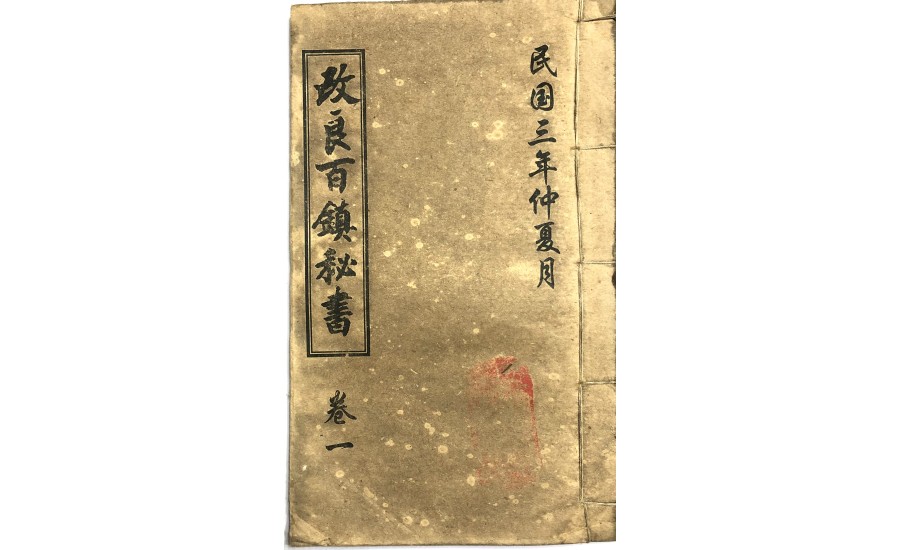 民国三年仲夏月
改良百鎮秘書
卷一